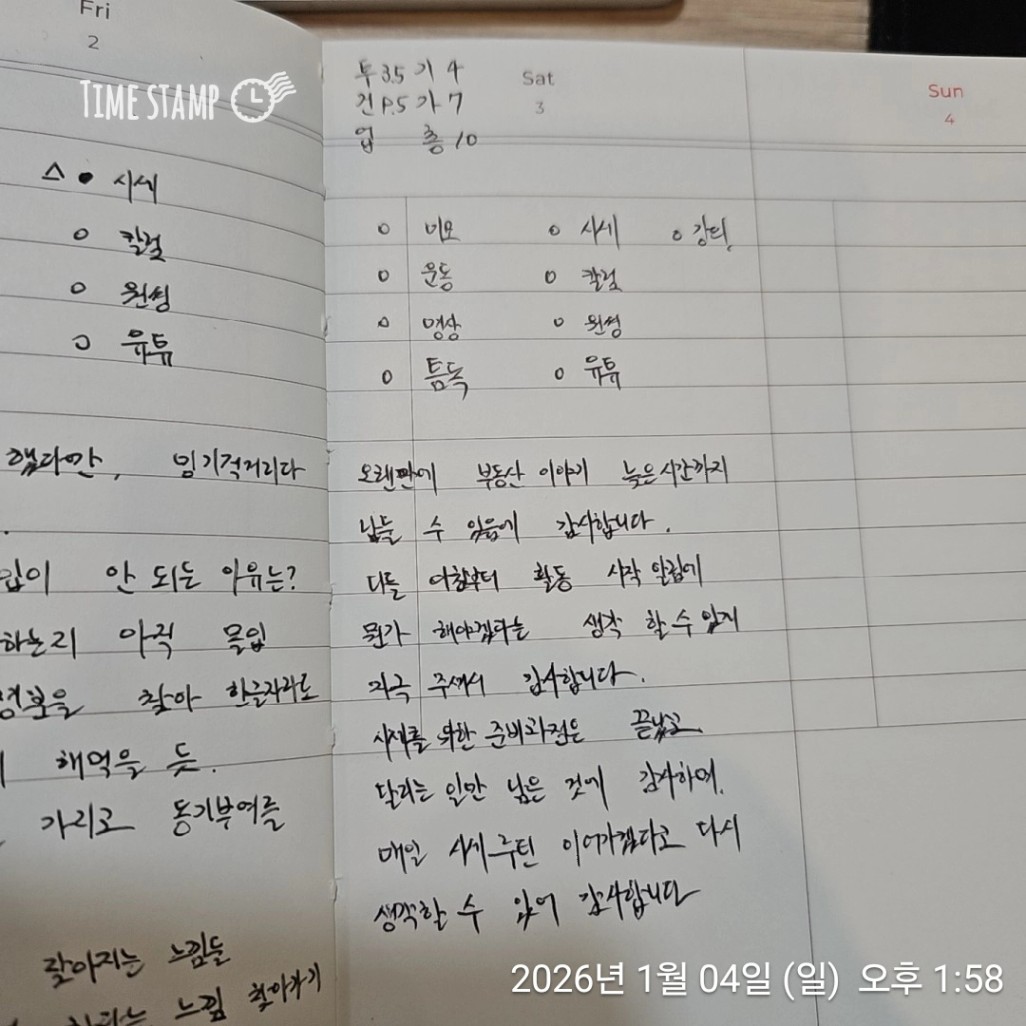 Fri
2
TIME STAMP
△ ● 시세
○ 칼럼
○ 원씽
○ 유튜
했다만,
안 되는 이유는?
아직 몰입
찾아
해먹을 듯.
가리고 동기부여를
같아지는 느낌들
느낌 찾아가기
투 3.5 기 4
건 P.5 가 7
업 총 10
Sat
3
○ 미모 ○ 시세 ○ 강의
○ 운동 ○ 칼럼
○ 명상 ○ 원씽
○ 틈독 ○ 유튜
오랜만에 부동산 이야기 늦은시간까지
나눌 수 있음에 감사합니다.
다들 아침부터 활동 시작 알림에
뭔가 해야겠다는 생각 할 수 있게
자극 주셔서 감사합니다.
시세를 위한 준비과정은 끝났고
달리는 일만 남은 것에 감사하며,
매일 시세루틴 이어가겠다고 다시
생각할 수 있어 감사합니다
Sun
4
2026년 1월 04일 (일) 오후 1:58